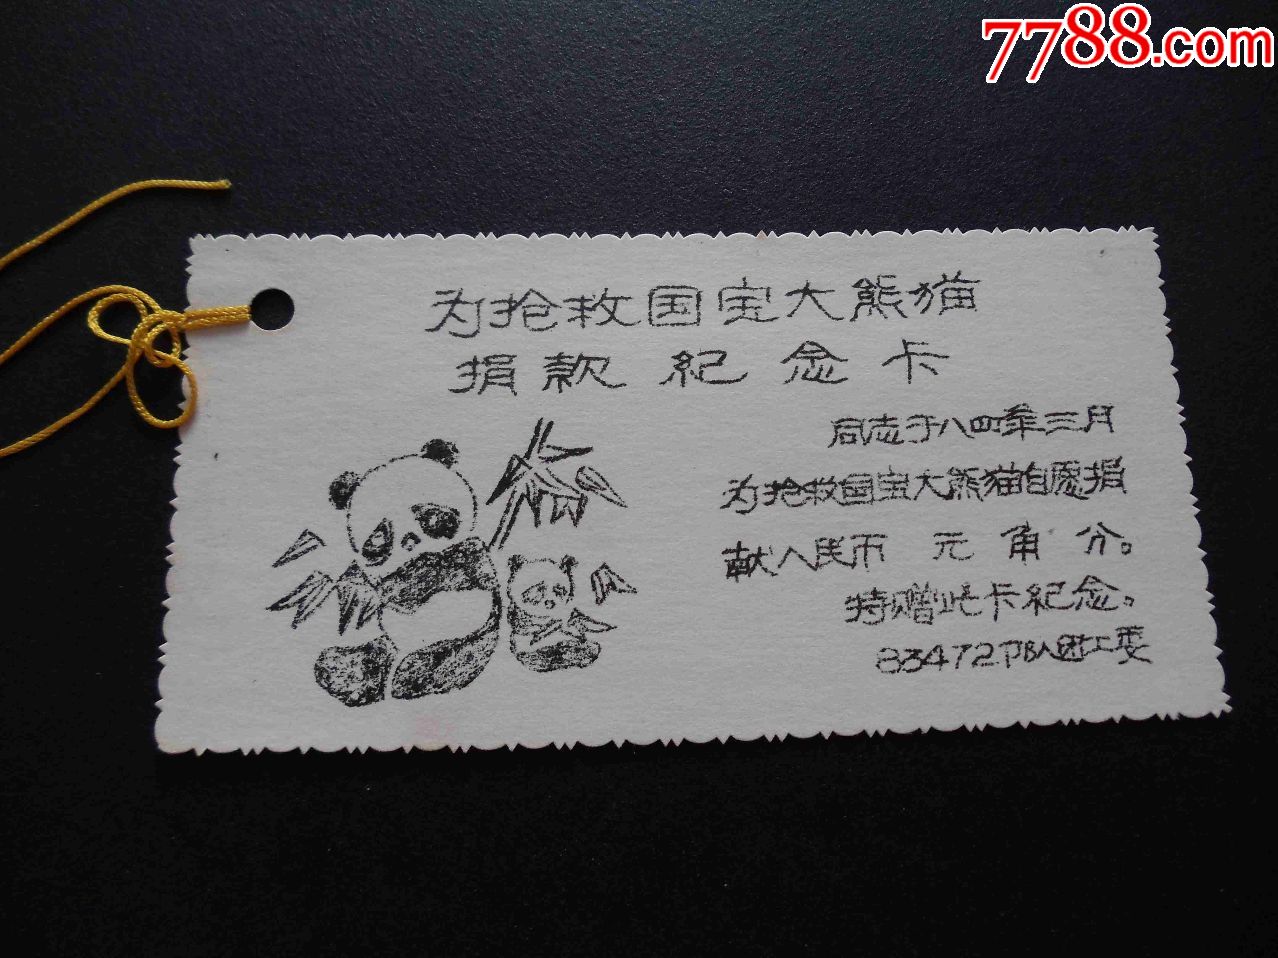 7788.com
为抢救国宝大熊猫
捐款纪念卡
同志于八四年三月
为抢救国宝大熊猫自愿捐
献人民币 元 角 分。
特赠此卡纪念。
83472部队团工委